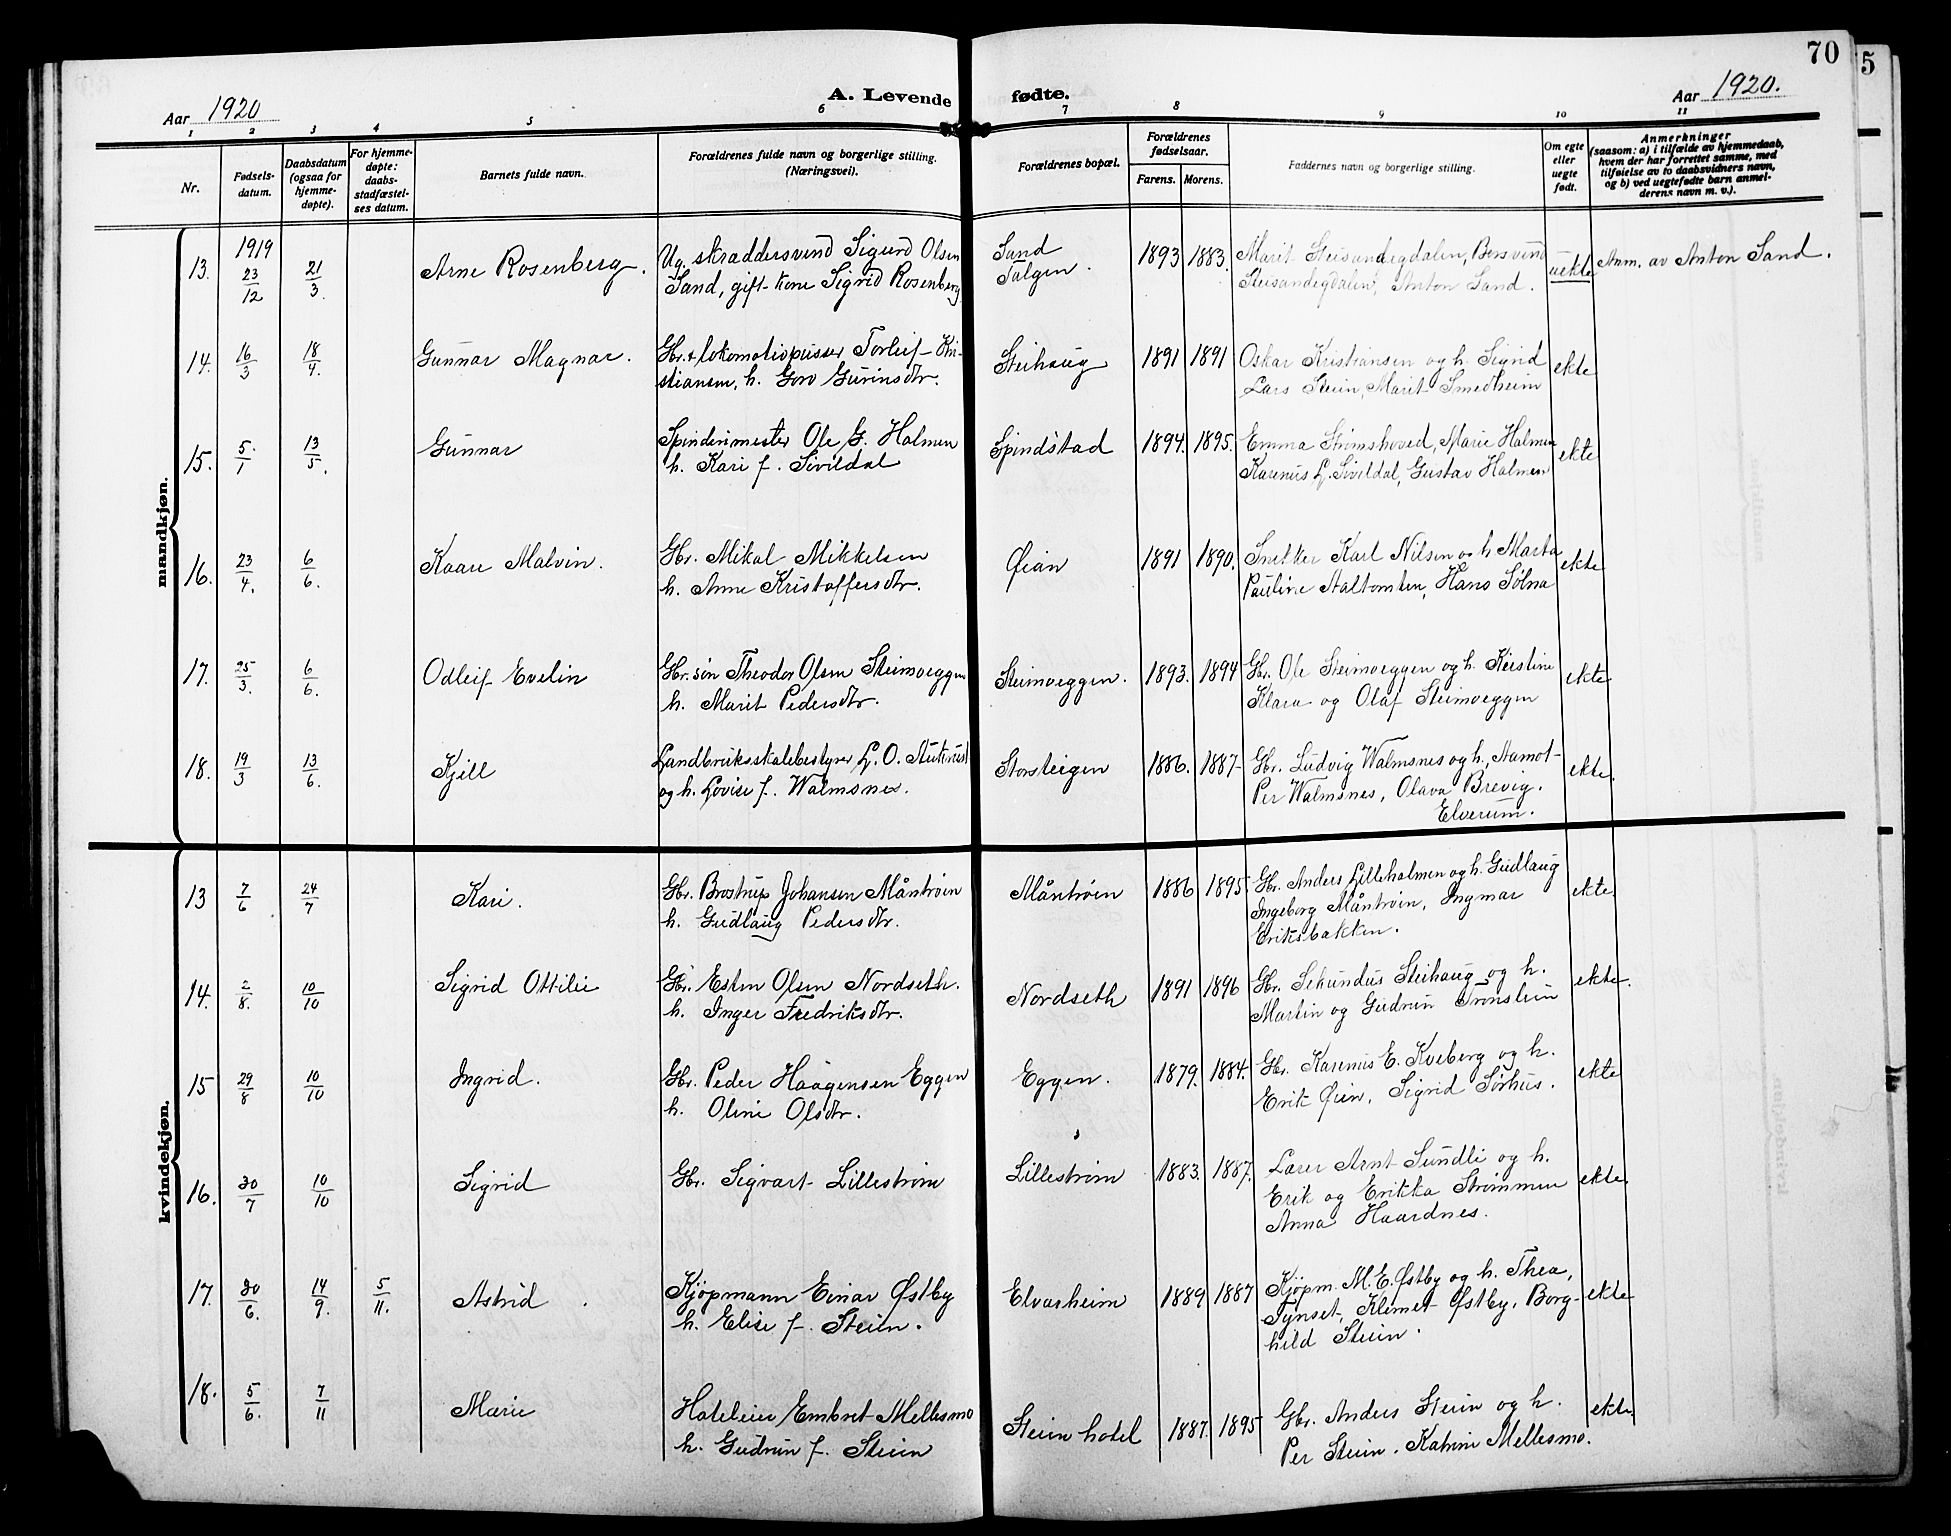 70
5
Aar 1920
A. Levende fødte.
Aar 1920.
1 2 3 4 5 6 7 8 9 10 11
Nr.
Fødsels-
datum.
Daabsdatum
(ogsaa for
hjemme-
døpte).
For hjemme-
døpte:
daabs-
stadfæstel-
ses datum.
Barnets fulde navn.
Forældrenes fulde navn og borgerlige stilling.
(Næringsvei).
Forældrenes bopæl.
Forældrenes
fødselsaar.
Farens. Morens.
Faddernes navn og borgerlige stilling.
Om egte
eller
uegte
født.
Anmerkninger
(saasom: a) i tilfælde av hjemmedaab,
hvem der har forrettet samme, med
tilføielse av to daabsvidners navn,
og b) ved uegtefødte barn anmel-
derens navn m. v.).
mandkjøn.
13. 1919 23/12 21/3. Arne Rosenberg. Ug. skræddersvend Sigurd Olsen Sand Talgen. 1893 1883. Marit
Sand, gift kone Sigrid Rosenberg Anton Sand. uekte Anm. av Anton Sand.
14. 16/3 18/4. Gunnar Magnar. Gbr. & lokomotivpusser Torleif Kri- Steihaug 1891 1891 Oskar Kristiansen og h. Sigrid ekte
stiansen, h. Goro Gurinsdtr. Lars Steien, Marit Smedheim
15. 5/1 13/5. Gunnar Spinderimester Ole G. Halmen Spindstad 1894. 1895. Emma Marie Halmen ekte
h. Kari f. Sivildal Karenus L. Sivildal, Gustav Halmen
16. 23/4. 6/6. Kaare Malvin. Gbr. Mikal Mikkelsen Øian 1891 1890. Snekker Karl Nilsen og h Marta ekte
h. Anne Kristoffersdtr. Pauline Hans Sølna
17. 25/3. 6/6. Odleif Evelin Gbr. søn Theodor Olsen Steimoeggen Steimoeggen. 1893. 1894 Gbr. Ole Steimoeggen og h. Kirstine ekte
h. Marit Pedersdtr. Klara og Olaf Steimoeggen
18. 19/3 13/6. Kjell Landbruksskolebestyrer L. O. og h. Lovise f. Walmsnes. Storsteigen 1886. 1887- Gbr. Ludvig Walmsnes og h., Aamot- ekte.
Per Walmsnes, Olava Brevig.
Elverum.
kvindekjøn.
13 7/6 24/7 Kari. Gbr. Brostrup Johansen Måntrøen Måntrøien 1886 1895 Gbr. Anders Lilleholmen og h. Gudlaug ekte.
h. Gudlaug Pedersdtr. Ingeborg Måntrøen, Ingmar
Eriksbakken.
14. 2/8. 10/10 Sigrid Ottilie Gbr. Esten Olsen Nordseth. Nordseth 1891 1896 Gbr. Sekundus Steihaug og h. ekte.
h. Inger Fredriksdtr. Martin og Gudrun Trønstein
15 29/8 10/10 Ingrid. Gbr. Peder Haagensen Eggen Eggen. 1879. 1884. Gbr. Karenus E. Kveberg og h. ekte
h. Oline Olsdtr. Erik Øien, Sigrid Sørhus.
16. 30/7 10/10 Sigrid Gbr. Sigvart Lillestrøm Lillestrøm 1883. 1887. Lærer Arnt Sundli og h. ekte.
Erik og Erikka Strømmen
Anna Haardnes.
17. 30/6. 14/9. 5/11. Astrid Kjøpmann Einar Østby Elvarheim 1889 1887 Kjøpm. M. E. Østby og h. Thea, ekte
h. Elise f. Steien. Tynset, Klemet Østby, Borg-
hild Steien.
18. 5/6. 7/11 Marie Hoteleier Embret Mellesmo Steien hotel 1887. 1895 Gbr. Anders Steien og h. ekte
h. Gudrun f. Steien Per Steien. Katrine Mellesmo.